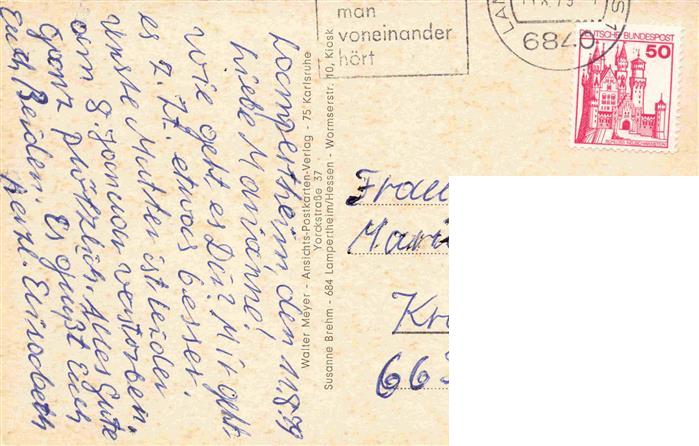 man
voneinander
hört
6840
DEUTSCHE BUNDESPOST
50
SCHLOSS NEUSCHWANSTEIN
Lampertheim, den 11.8.79
Liebe Marianne!
Wie geht es Dir? Mir geht
es z. Zt. etwas besser.
Unsre Mutter ist leider
am 8. Januar verstorben.
Ganz plötzlich. Alles Gute
Euch Beiden. Es grüßt Euch
herzl. Elisabeth
Walter Meyer - Ansichts-Postkarten-Verlag - 75 Karlsruhe
Yorckstraße 37
Susanne Brehm - 684 Lampertheim/Hessen - Wormserstr. 10, Kiosk
Frau
Mari
Kr
663